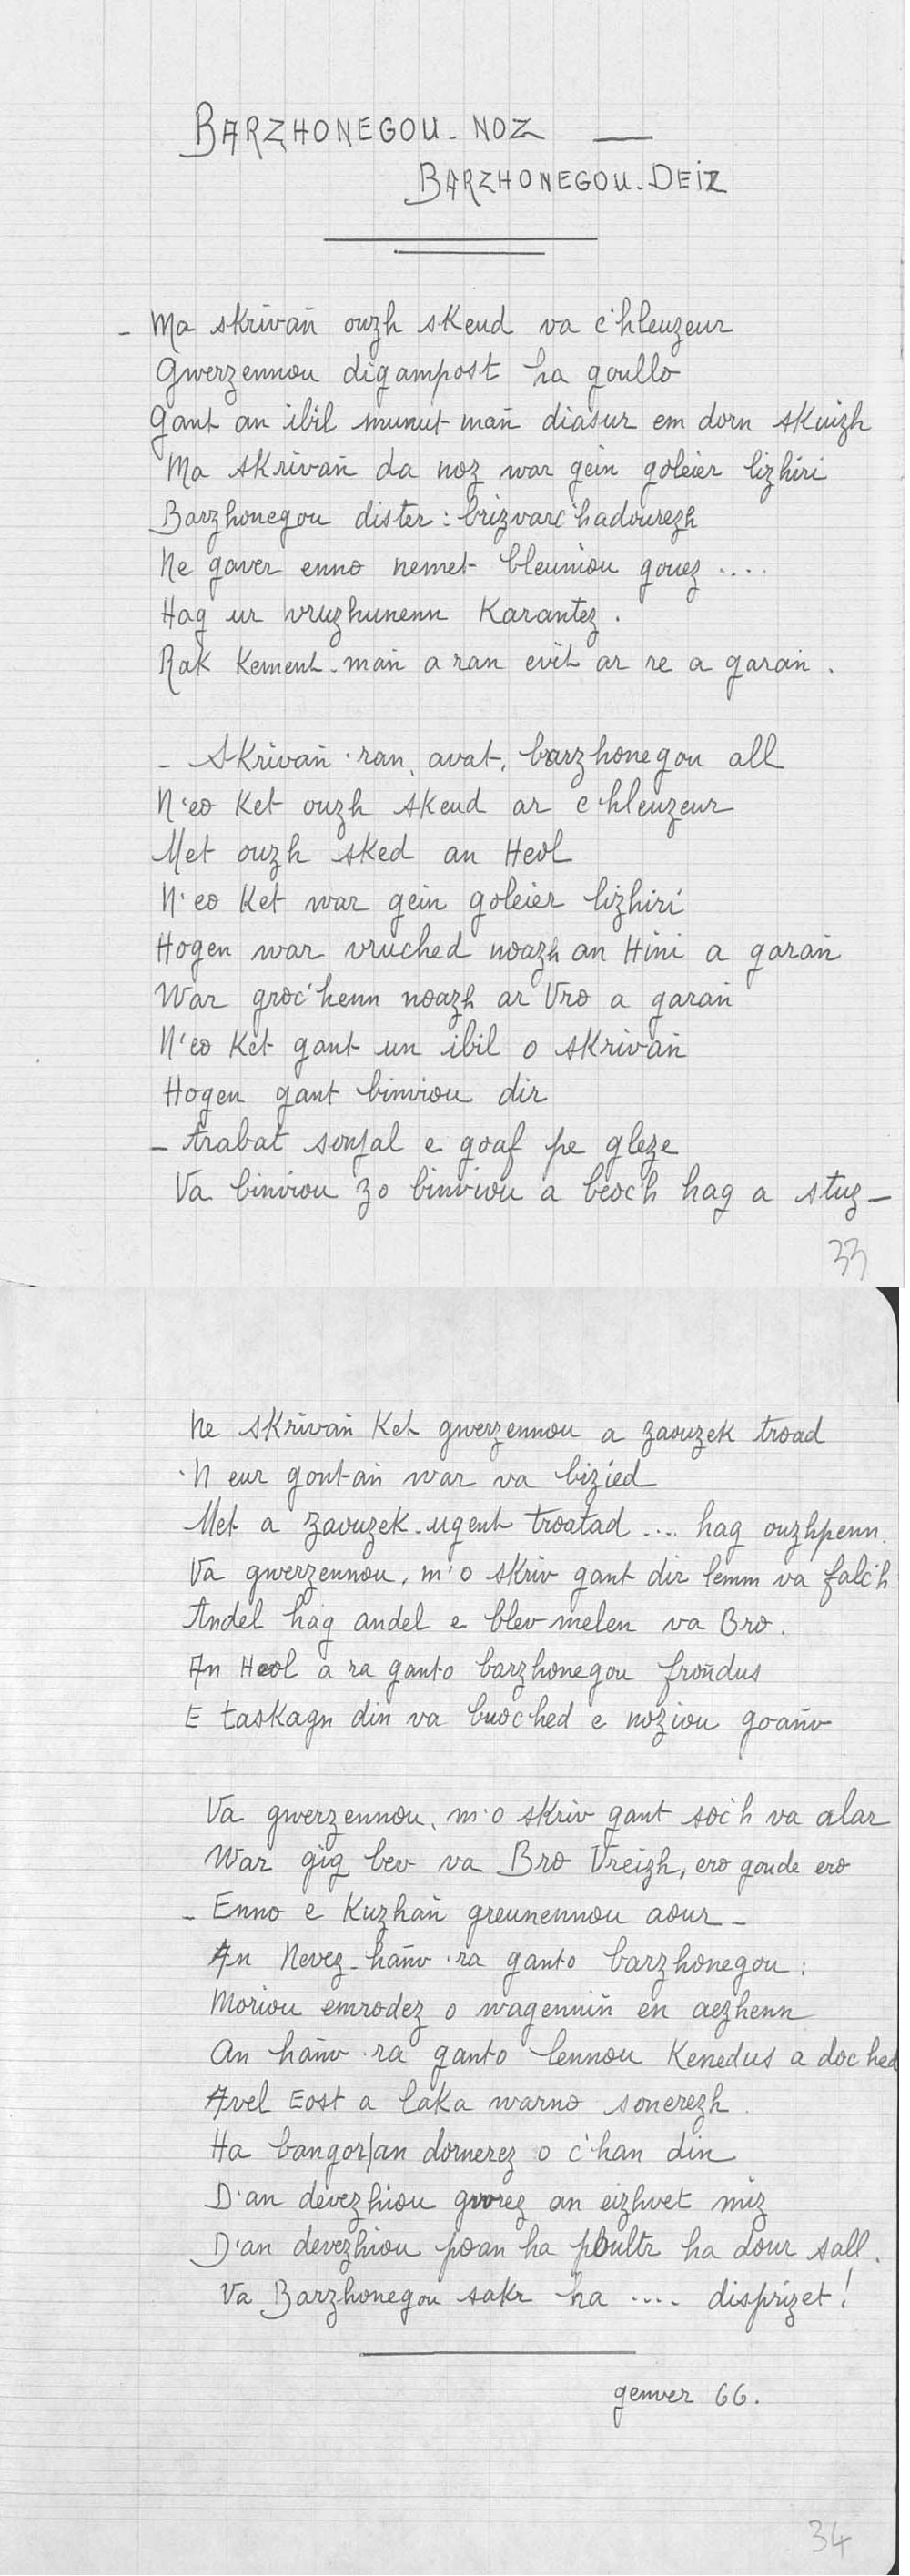 BARZHONEGOU-NOZ —
BARZHONEGOU-DEIZ
- Ma skrivañ ouzh skeud va c'hleuzeur
Gwerzennou digampost ha goullo
Gant an ibil munut-mañ diasur em dorn skuizh
Ma skrivañ da noz war gein goleier lizhiri
Barzhonegou dister : brizvarc'hadourezh
Ne gaver enno nemet bleuniou gouez ....
Hag ur vruzhunenn Karantez.
Rak Kement-mañ a ran evit ar re a garañ.
- Skrivañ 'ran, avat, barzhonegou all
N'eo Ket ouzh skeud ar c'hleuzeur
Met ouzh sked an Heol
N'eo Ket war gein goleier lizhiri
Hogen war vruched noazh an Hini a garañ
War groc'henn noazh ar Vro a garañ
N'eo Ket gant un ibil o skrivañ
Hogen gant binviou dir
- Arabat soñjal e goaf pe gleze
Va binviou zo binviou a beoc'h hag a stuz -
33
Ne skrivañ Ket gwerzennou a zaouzek troad
'N eur gontañ war va bizied
Met a zaouzek-ugent troatad .... hag ouzhpenn.
Va gwerzennou, m'o skriv gant dir lemm va falc'h
Andel hag andel e blev melen va Bro.
An Heol a ra ganto barzhonegou frondus
E taskagn din va buoc'hed e noziou goañv
Va gwerzennou, m'o skriv gant soc'h va alar
War gig bev va Bro Vreizh, ero goude ero
- Enno e Kuzhañ greunennou aour -
An Nevez-hañv 'ra ganto barzhonegou :
Moriou emrodez o wagenniñ en aezhenn
An hañv 'ra ganto lennou Kenedus a doc'hed
Avel Eost a laka warno sonerezh
Ha bangor an dornerez o c'han din
D'an devezhiou gworez an eizhvet miz
D'an devezhiou poan ha poultr ha dour sall.
Va Barzhonegou sakr ha .... disprizet !
genver 66.
34